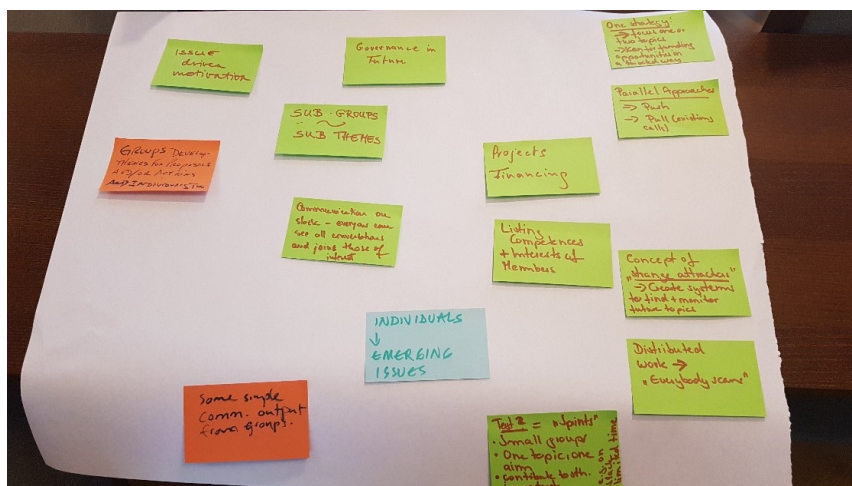 Issue
driven
motivation
Governance in
Future
One strategy:
→ focus one or
two topics
opportunities in
Parallel Approaches
→ Push
→ Pull (existing
calls)
SUB-GROUPS
~
SUB THEMES
GROUPS DEVELOP
THEMES FOR PROPOSALS
AND INDIVIDUALS
Projects
Financing
Communication on
slack - everyone can
see all conversations
and joins those of
interest
Listing
Competences
+ Interests of
Members
Concept of
"strange attractors"
→ Create systems
to find + monitor
future topics
INDIVIDUALS
↓
EMERGING
ISSUES
Distributed
work →
"Everybody scans"
Some simple
comm. output
from groups.
= "Sprints"
• Small groups
• One topic, one
aim
• contribute both
limited time